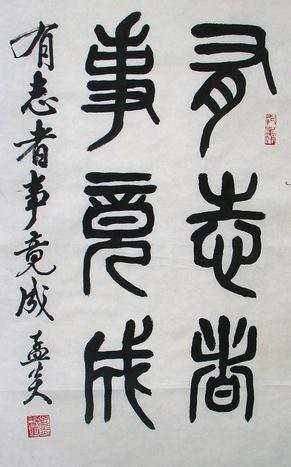 有志者
事竟成
有志者事竟成 孟英